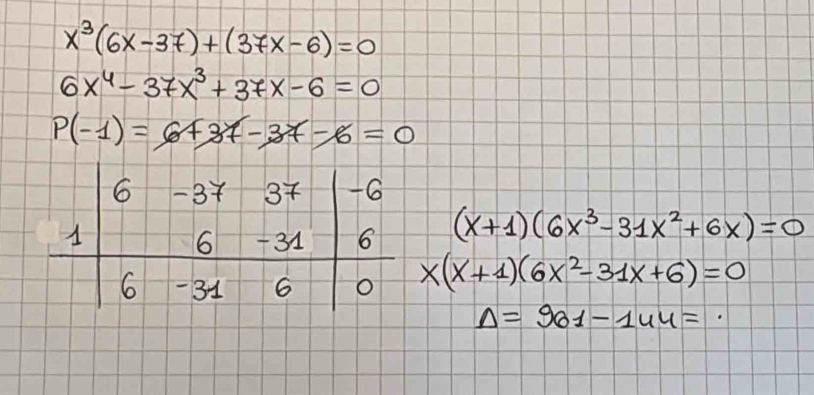 x³(6x-37)+(37x-6)=0
6x⁴-37x³+37x-6=0
P(-1)=6+37-37-6=0
6 -37 37 -6
1 6 -31 6
6 -31 6 0
(x+1)(6x³-31x²+6x)=0
x(x+1)(6x²-31x+6)=0
Δ=961-144=.